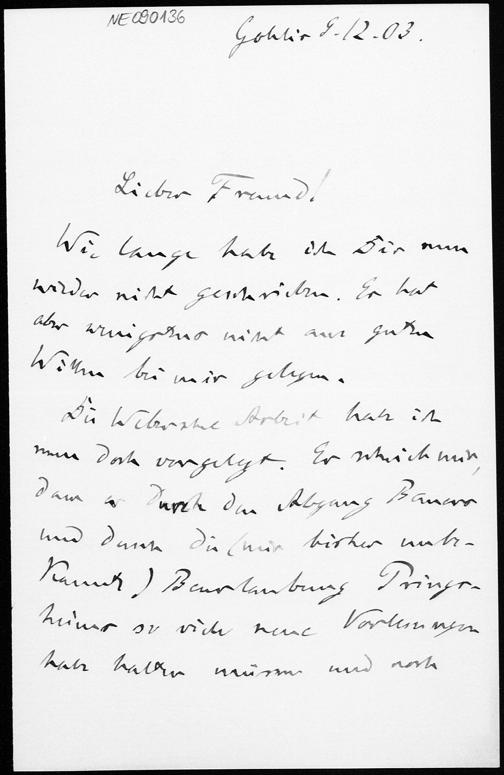 NE090136
Gohlis 9-12-03.
Lieber Freund!
Wie lange habe ich Dir nun
wieder nicht geschrieben. Es hat
aber wenigstens nicht am guten
Willen bei mir gelegen.
Die Webersche Arbeit habe ich
nun doch vorgelegt. Er schrieb mir,
dass er durch den Abgang Bauers
und durch die (mir bisher unbe-
kannte) Beurlaubung Prings-
heims so viele neue Vorlesungen
habe halten müssen und noch